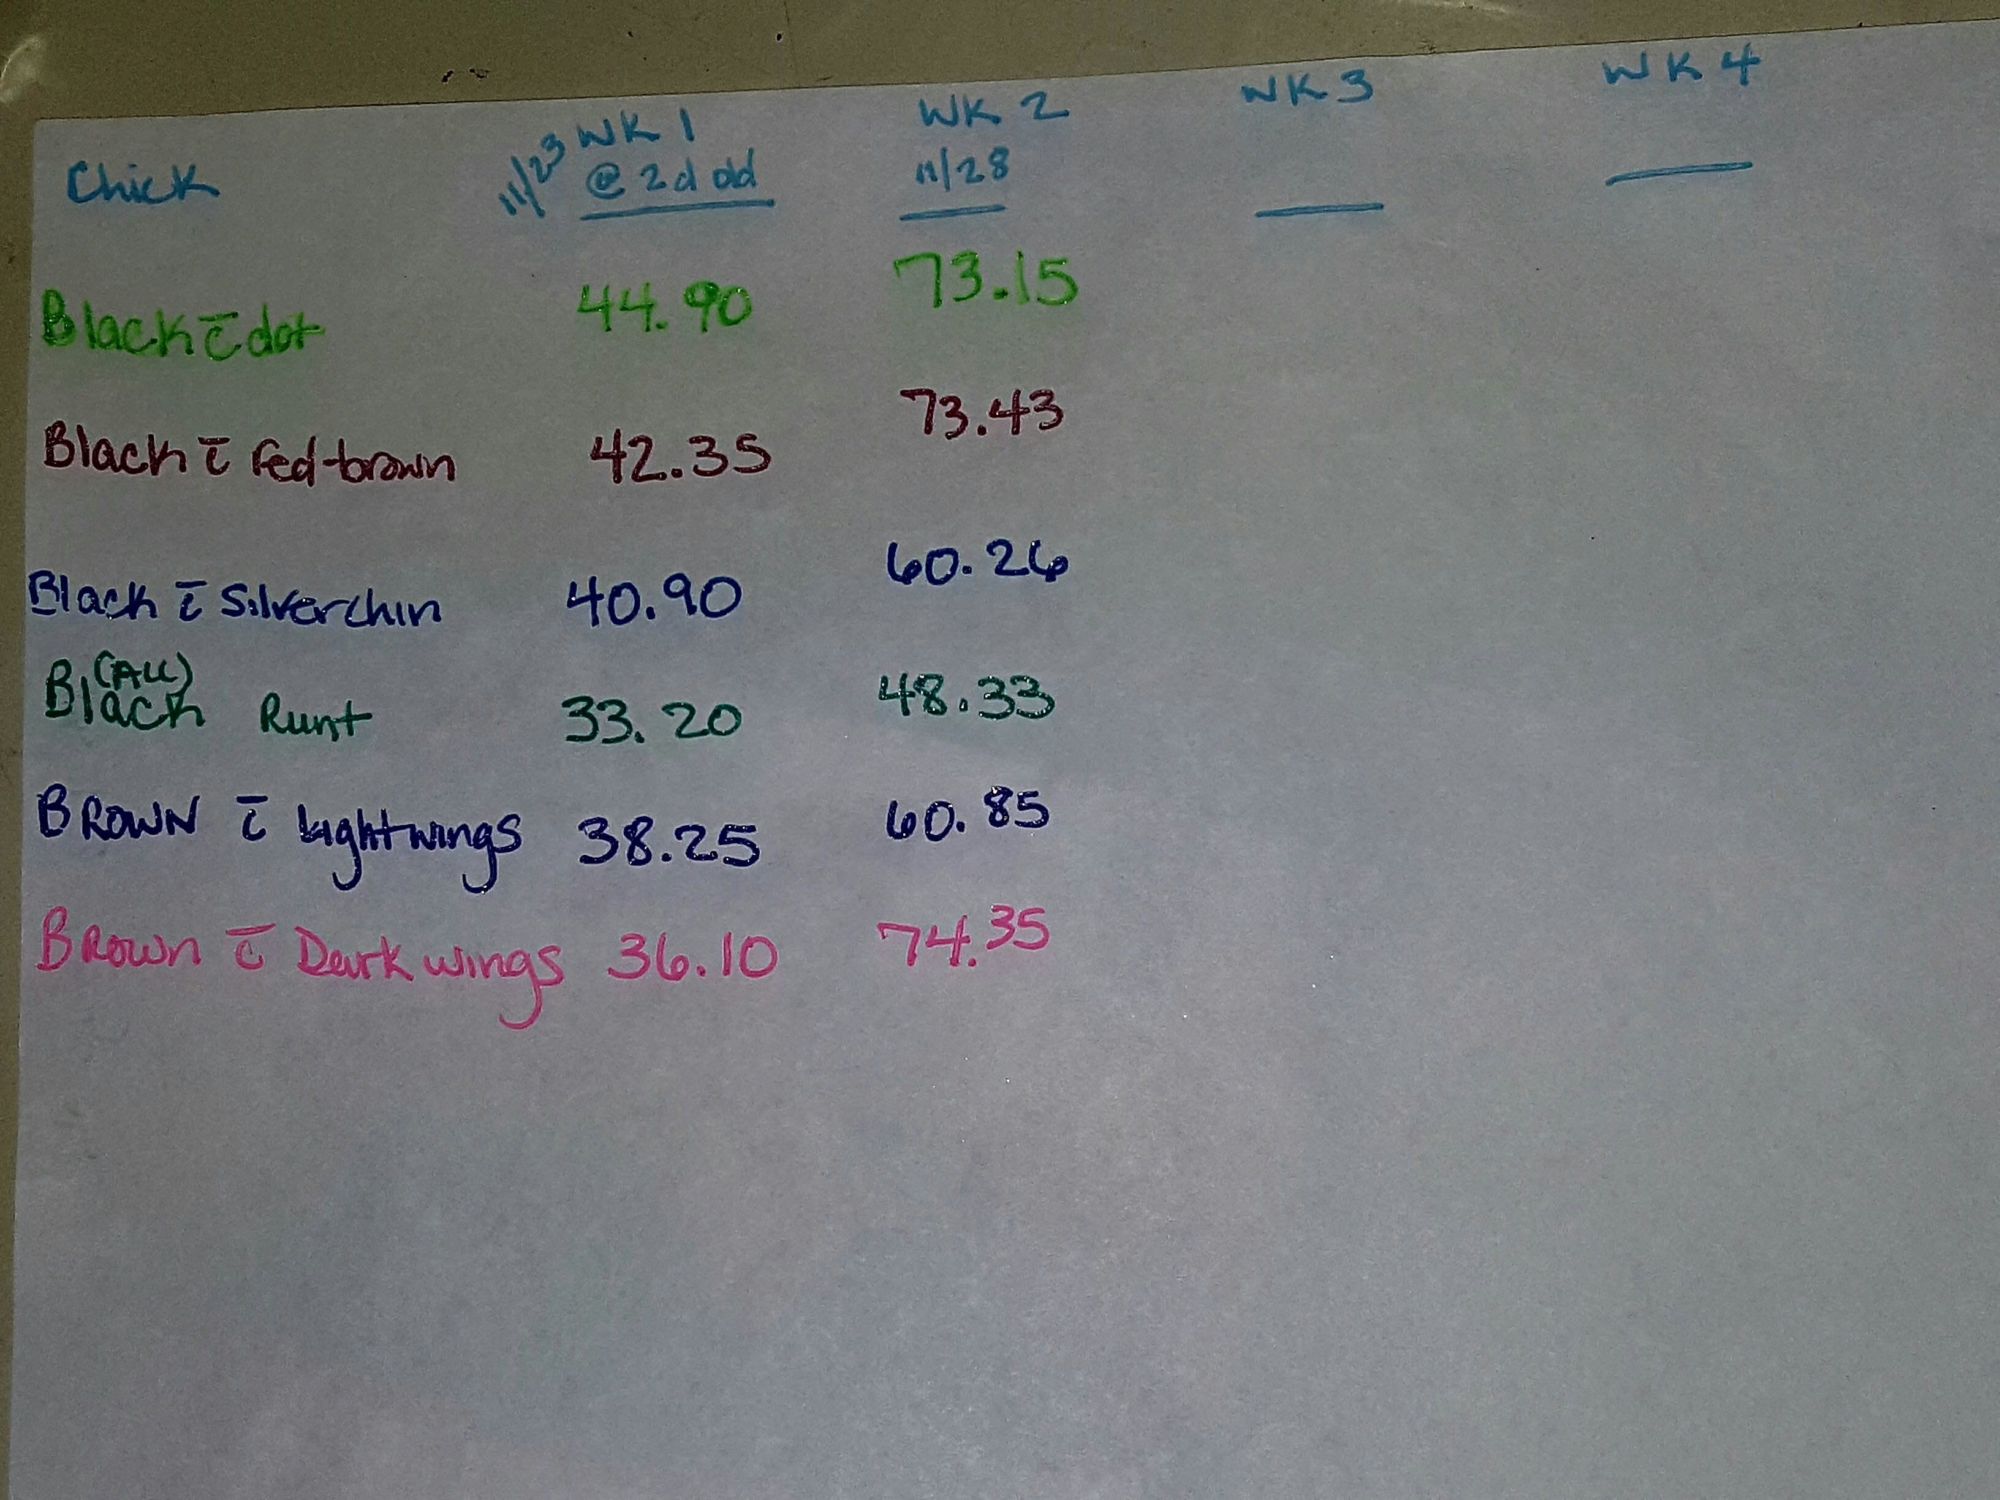 Chick 11/23 WK 1 WK 2 WK 3 WK 4
@ 2d old 11/28
Black c̄ dot 44.90 73.15
Black c̄ red-brown 42.35 73.43
Black c̄ Silverchin 40.90 60.26
(ALL)
Black Runt 33.20 48.33
BROWN c̄ lightwings 38.25 60.85
Brown c̄ Dark wings 36.10 74.35